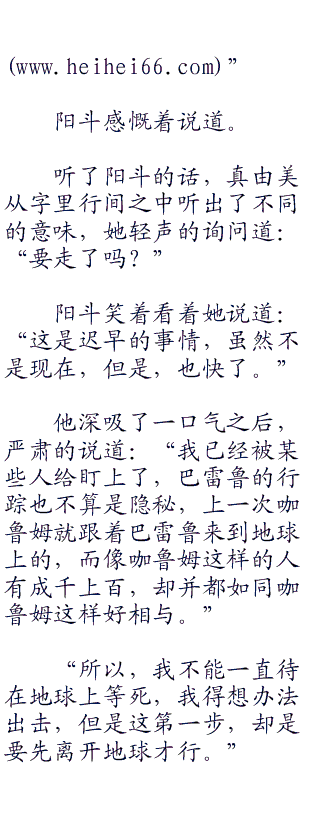 (www.heihei66.com)”
阳斗感慨着说道。
听了阳斗的话，真由美
从字里行间之中听出了不同
的意味，她轻声的询问道：
“要走了吗？”
阳斗笑着看着她说道：
“这是迟早的事情，虽然不
是现在，但是，也快了。”
他深吸了一口气之后，
严肃的说道：“我已经被某
些人给盯上了，巴雷鲁的行
踪也不算是隐秘，上一次咖
鲁姆就跟着巴雷鲁来到地球
上的，而像咖鲁姆这样的人
有成千上百，却并都如同咖
鲁姆这样好相与。”
“所以，我不能一直待
在地球上等死，我得想办法
出击，但是这第一步，却是
要先离开地球才行。”